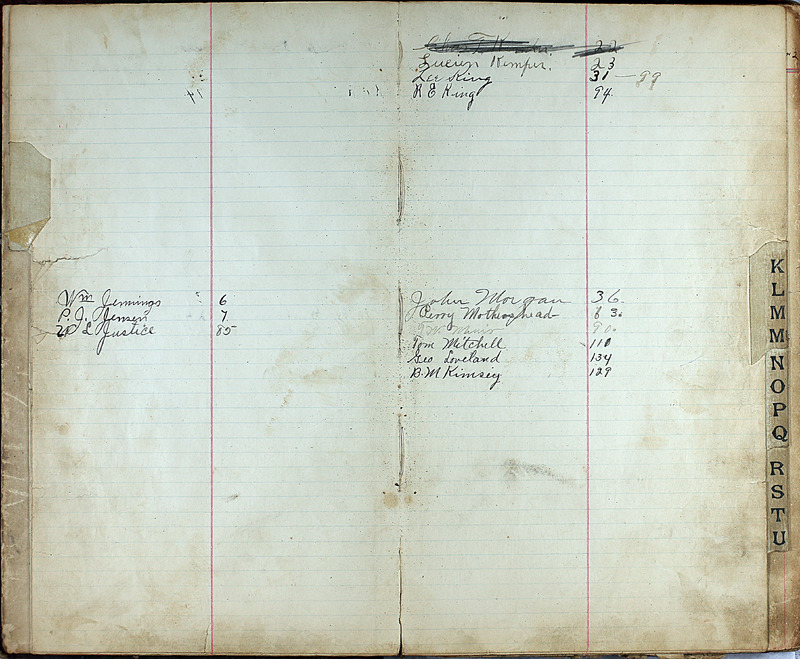 Wm Jennings 6
P. J. Jensen 7
W L Justice 85
22
Lucien Kemper. 23
Lee King 31 — 99
R E King 94
John Morgan 36.
Perry Mothershead 63.
90.
Tom Mitchell 110
Geo Loveland 134
B. M Kimsey 129
K
L
M
M
N
O
P
Q
R
S
T
U